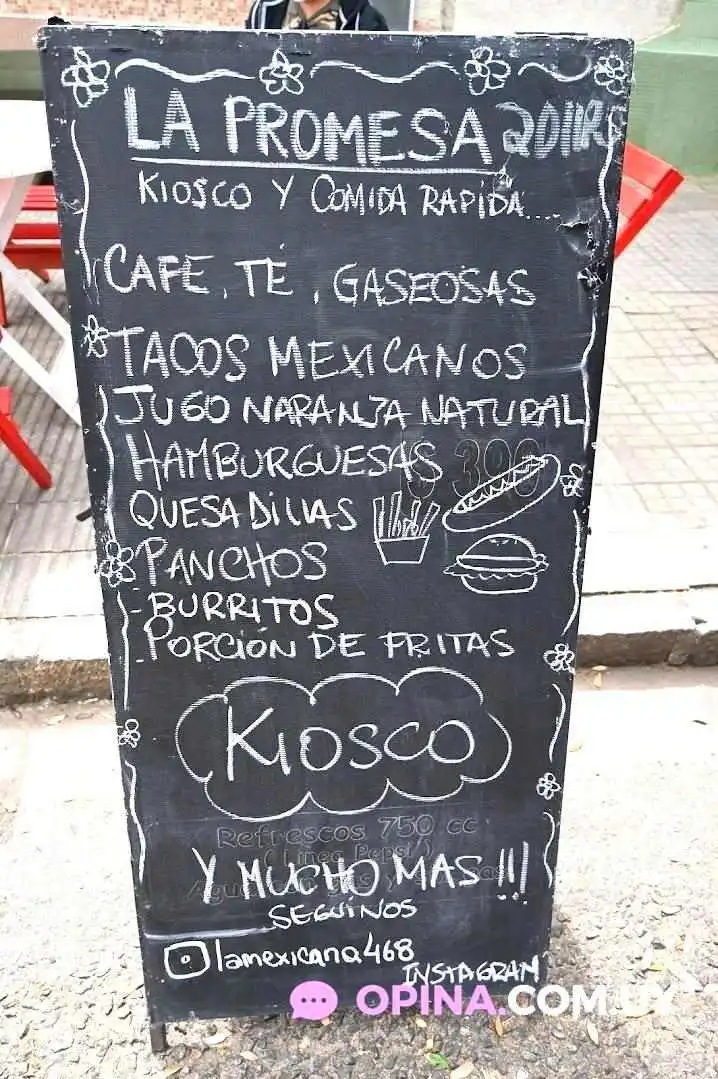 LA PROMESA
KIOSCO Y COMIDA RAPIDA....
CAFE, TÉ, GASEOSAS
TACOS MEXICANOS
JUGO NARANJA NATURAL
HAMBURGUESAS
390
QUESADILLAS
PANCHOS
-BURRITOS
-PORCIÓN DE FRITAS
KIOSCO
Refrescos 750 cc
(Linea Pepsi)
Y MUCHO MAS !!!
SEGUINOS
lamexicana468
INSTAGRAM
OPINA.COM.UY